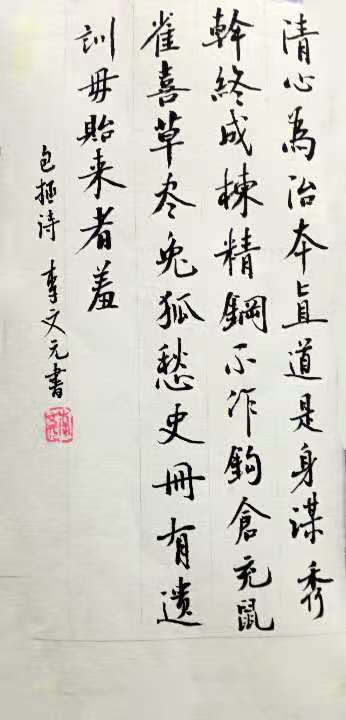 清心為治本直道是身謀秀
幹終成棟精鋼不作鉤倉充鼠
雀喜草尽兔狐愁史冊有遗
訓毋貽来者羞
包拯诗 李文元書